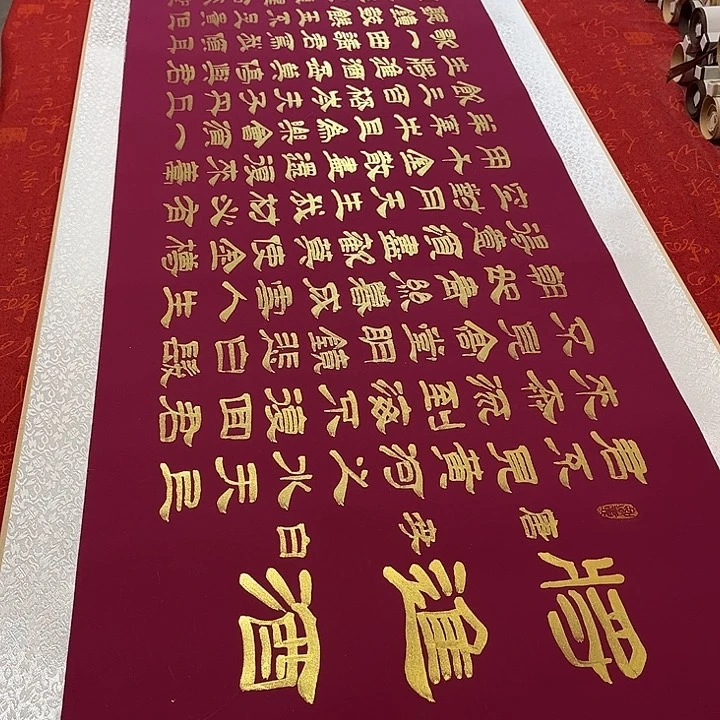 將進酒
唐李白
君不見黃河之水天上
來奔流到海不復回君
不見高堂明鏡悲白髮
朝如青絲暮成雪人生
得意須盡歡莫使金樽
空對月天生我材必有
用千金散盡還復來烹
羊宰牛且為樂會須一
飲三百杯岑夫子丹丘
生將進酒盃莫停與君
歌一曲請君為我傾耳
聽鐘鼓饌玉不足貴但